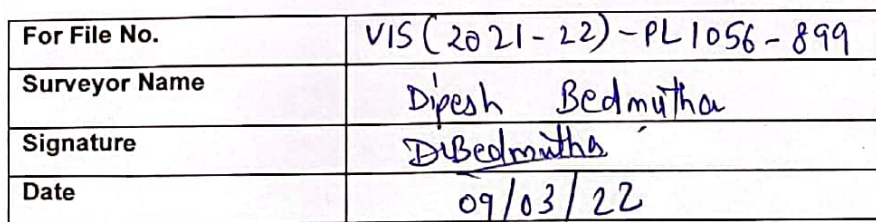 For File No. VIS(2021-22)-PL1056-899
Surveyor Name Dipesh Bedmutha
Signature DBedmutha
Date 09/03/22